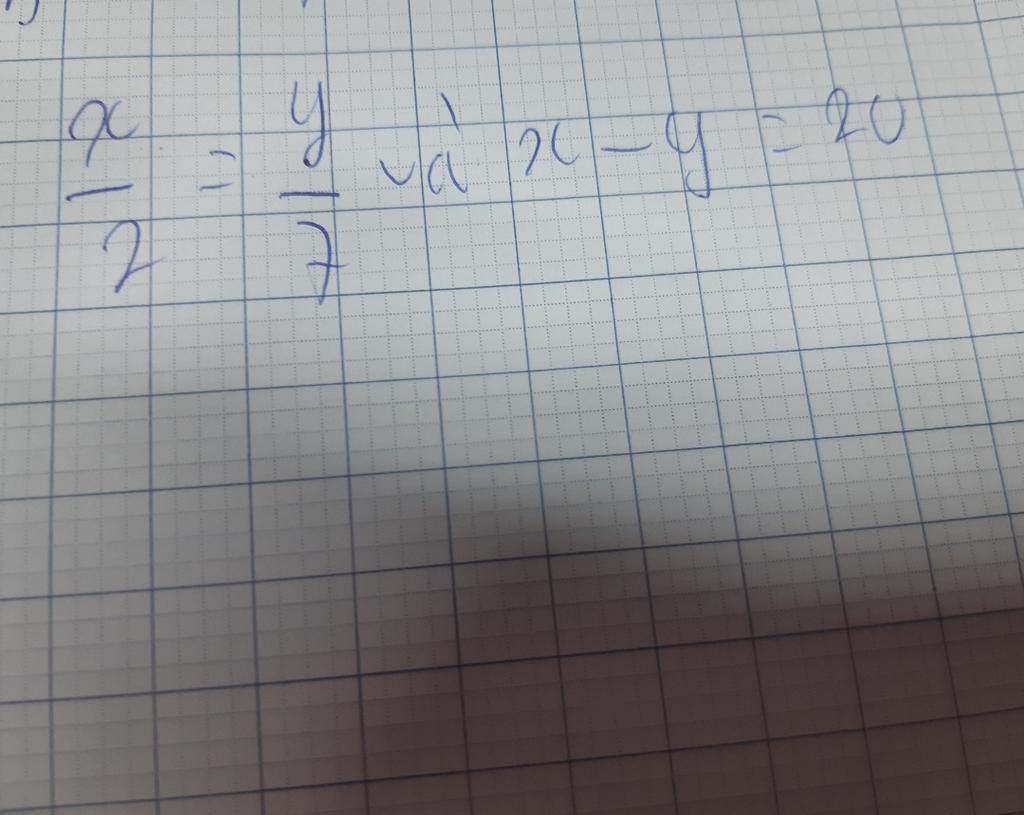 x/2 = y/7 và x - y = 20